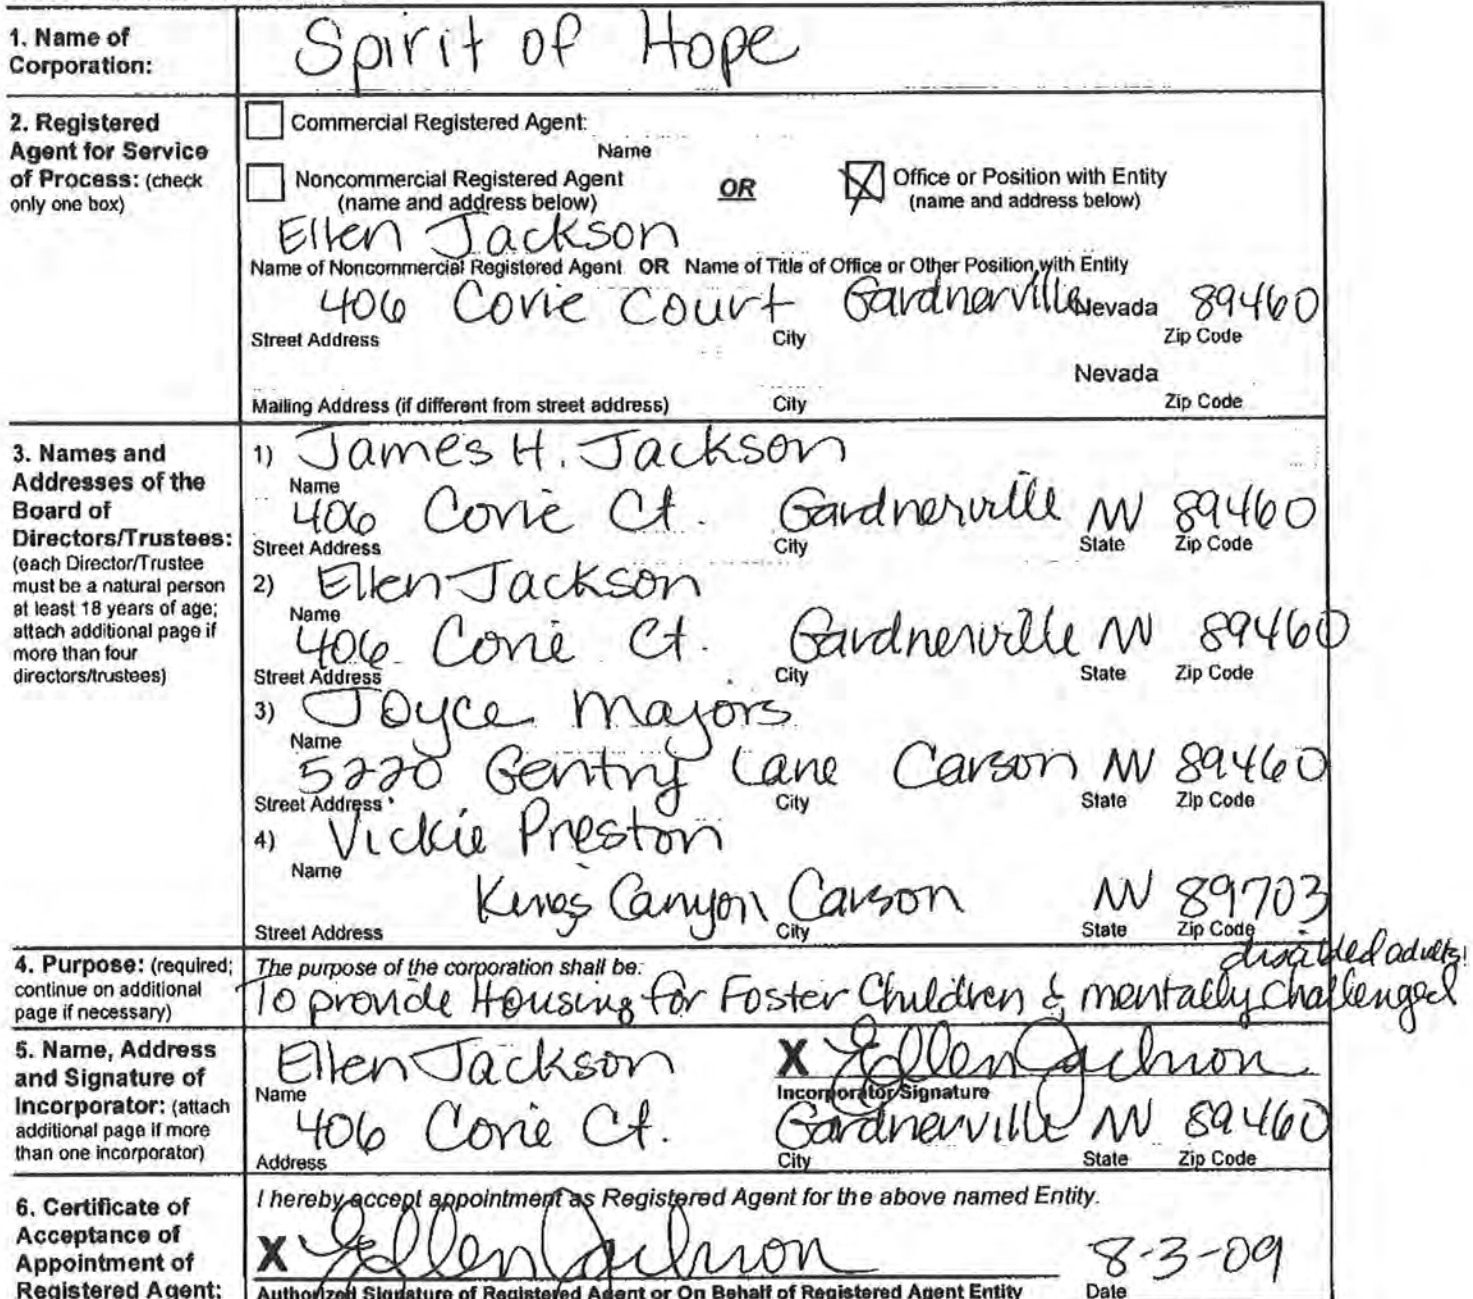 1. Name of Corporation: Spirit of Hope
2. Registered Agent for Service of Process: (check only one box)
Commercial Registered Agent:
Name
Noncommercial Registered Agent (name and address below) OR Office or Position with Entity (name and address below)
Ellen Jackson
Name of Noncommercial Registered Agent OR Name of Title of Office or Other Position with Entity
406 Corie Court Gardnerville Nevada 89460
Street Address City Zip Code
Nevada
Mailing Address (if different from street address) City Zip Code
3. Names and Addresses of the Board of Directors/Trustees: (each Director/Trustee must be a natural person at least 18 years of age; attach additional page if more than four directors/trustees)
1) James H. Jackson
Name
406 Corie Ct. Gardnerville NV 89460
Street Address City State Zip Code
2) Ellen Jackson
Name
406 Corie Ct. Gardnerville NV 89460
Street Address City State Zip Code
3) Joyce Majors
Name
5220 Gentry Lane Carson NV 89460
Street Address City State Zip Code
4) Vickie Preston
Name
Kings Canyon Carson NV 89703
Street Address City State Zip Code
4. Purpose: (required; continue on additional page if necessary)
The purpose of the corporation shall be:
disabled adults!
To provide Housing for Foster Children & mentally challenged
5. Name, Address and Signature of Incorporator: (attach additional page if more than one incorporator)
Ellen Jackson X Ellen Jackson
Name Incorporator Signature
406 Corie Ct. Gardnerville NV 89460
Address City State Zip Code
6. Certificate of Acceptance of Appointment of Registered Agent:
I hereby accept appointment as Registered Agent for the above named Entity.
X Ellen Jackson 8-3-09
Authorized Signature of Registered Agent or On Behalf of Registered Agent Entity Date